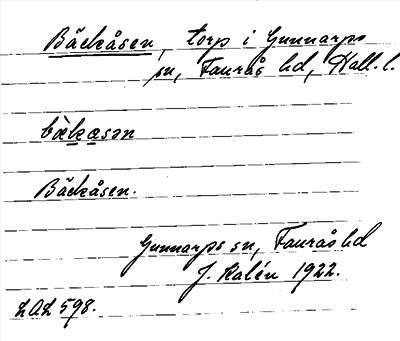 Bäckåsen, torp i Gunnarps
sn, Faurås hd, Hall. l.
bækasən
Bäckåsen.
Gunnarps sn, Faurås hd
J. Kalén 1922.
LAL 598.